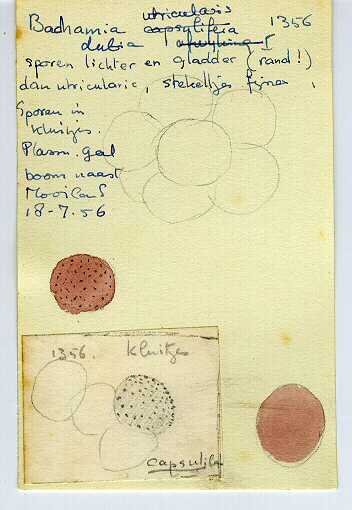 utricularis
Badhamia capsulifera 1356
dubia
sporen lichter en gladder (rand!)
dan utricularis, stekeltjes fijner.
Sporen in
kluitjes.
Plasm. geel
boom naast
Mooiland
18-7.56
1356. Kluitjes
capsulifera